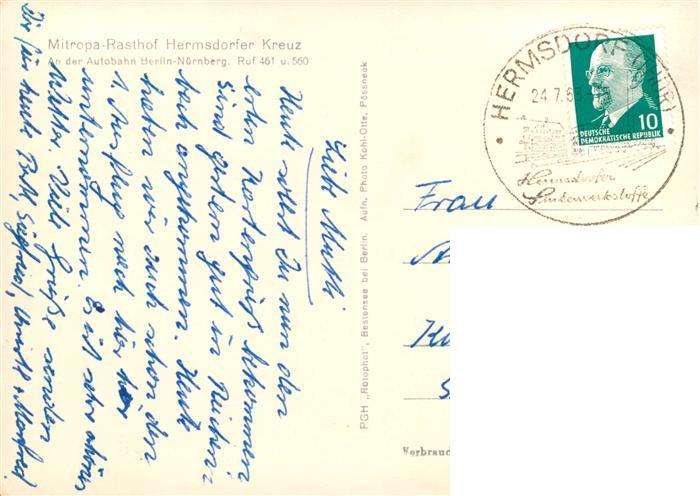 Mitropa-Rasthof Hermsdorfer Kreuz
An der Autobahn Berlin-Nürnberg. Ruf 461 u. 560
Liebe Mutti
Heute sollst Du nun den
ersten Kartengruß bekommen.
Sind gestern gut in Reichen-
bach angekommen. Heute
haben wir auch schon den
1. Ausflug nach hier
unternommen. Es ist sehr schönes
Wetter. Viele Grüße senden
Dir für heute Siegfried, Manfred
PGH „Rotophot", Bestensee bei Berlin. Aufn. Photo Kohl-Otte, Pössneck
HERMSDORF (THÜR)
24.7.63
Hermsdorfer
10
DEUTSCHE
DEMOKRATISCHE REPUBLIK
Frau
Verbrauc